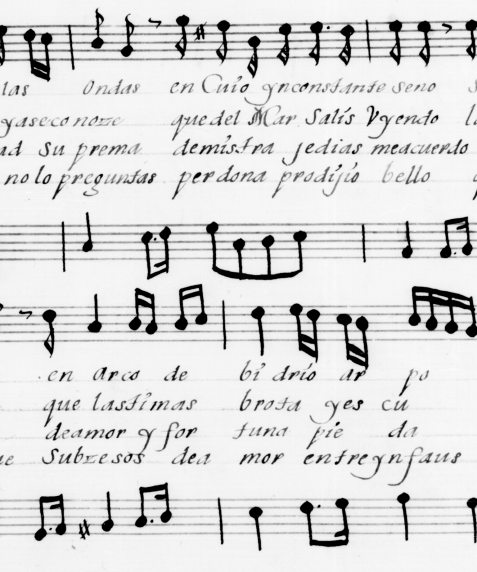 las Ondas en Cuio ynconstante seno
yaseconoze quedel Mar Salis Vyendo
ad Su prema demistra jedias meacuerdo
no lo preguntas perdona prodijio bello
en Arco de bi drio ar po
que lastimas brota yes cu
deamor y for tuna pie da
Subzesos dea mor entreynfaus